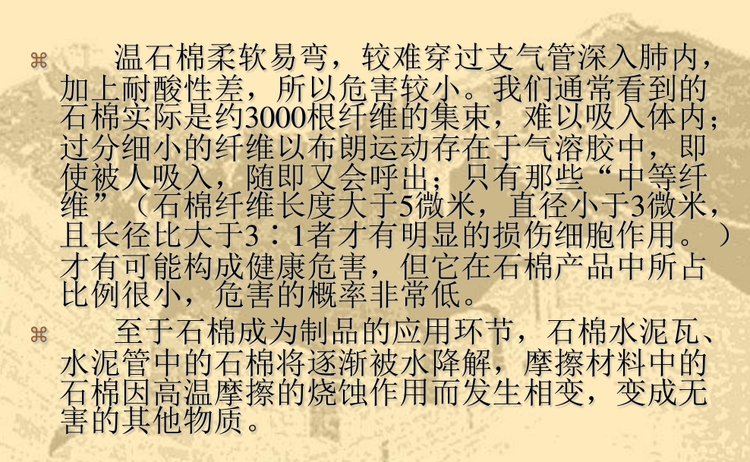 温石棉柔软易弯，较难穿过支气管深入肺内，
加上耐酸性差，所以危害较小。我们通常看到的
石棉实际是约3000根纤维的集束，难以吸入体内；
过分细小的纤维以布朗运动存在于气溶胶中，即
使被人吸入，随即又会呼出；只有那些“中等纤
维”（石棉纤维长度大于5微米，直径小于3微米，
且长径比大于3∶1者才有明显的损伤细胞作用。）
才有可能构成健康危害，但它在石棉产品中所占
比例很小，危害的概率非常低。
至于石棉成为制品的应用环节，石棉水泥瓦、
水泥管中的石棉将逐渐被水降解，摩擦材料中的
石棉因高温摩擦的烧蚀作用而发生相变，变成无
害的其他物质。